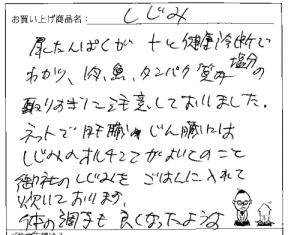 お買い上げ商品名： しじみ
尿たんぱくが ＋と健康診断で
わかり、肉、魚、タンパク質や塩分の
取りすぎに注意しておりました。
ネットで肝臓、じん臓には
しじみのオルニチンがよいとのこと
御社のしじみをごはんに入れて
炊いております。
体の調子も良くなったような